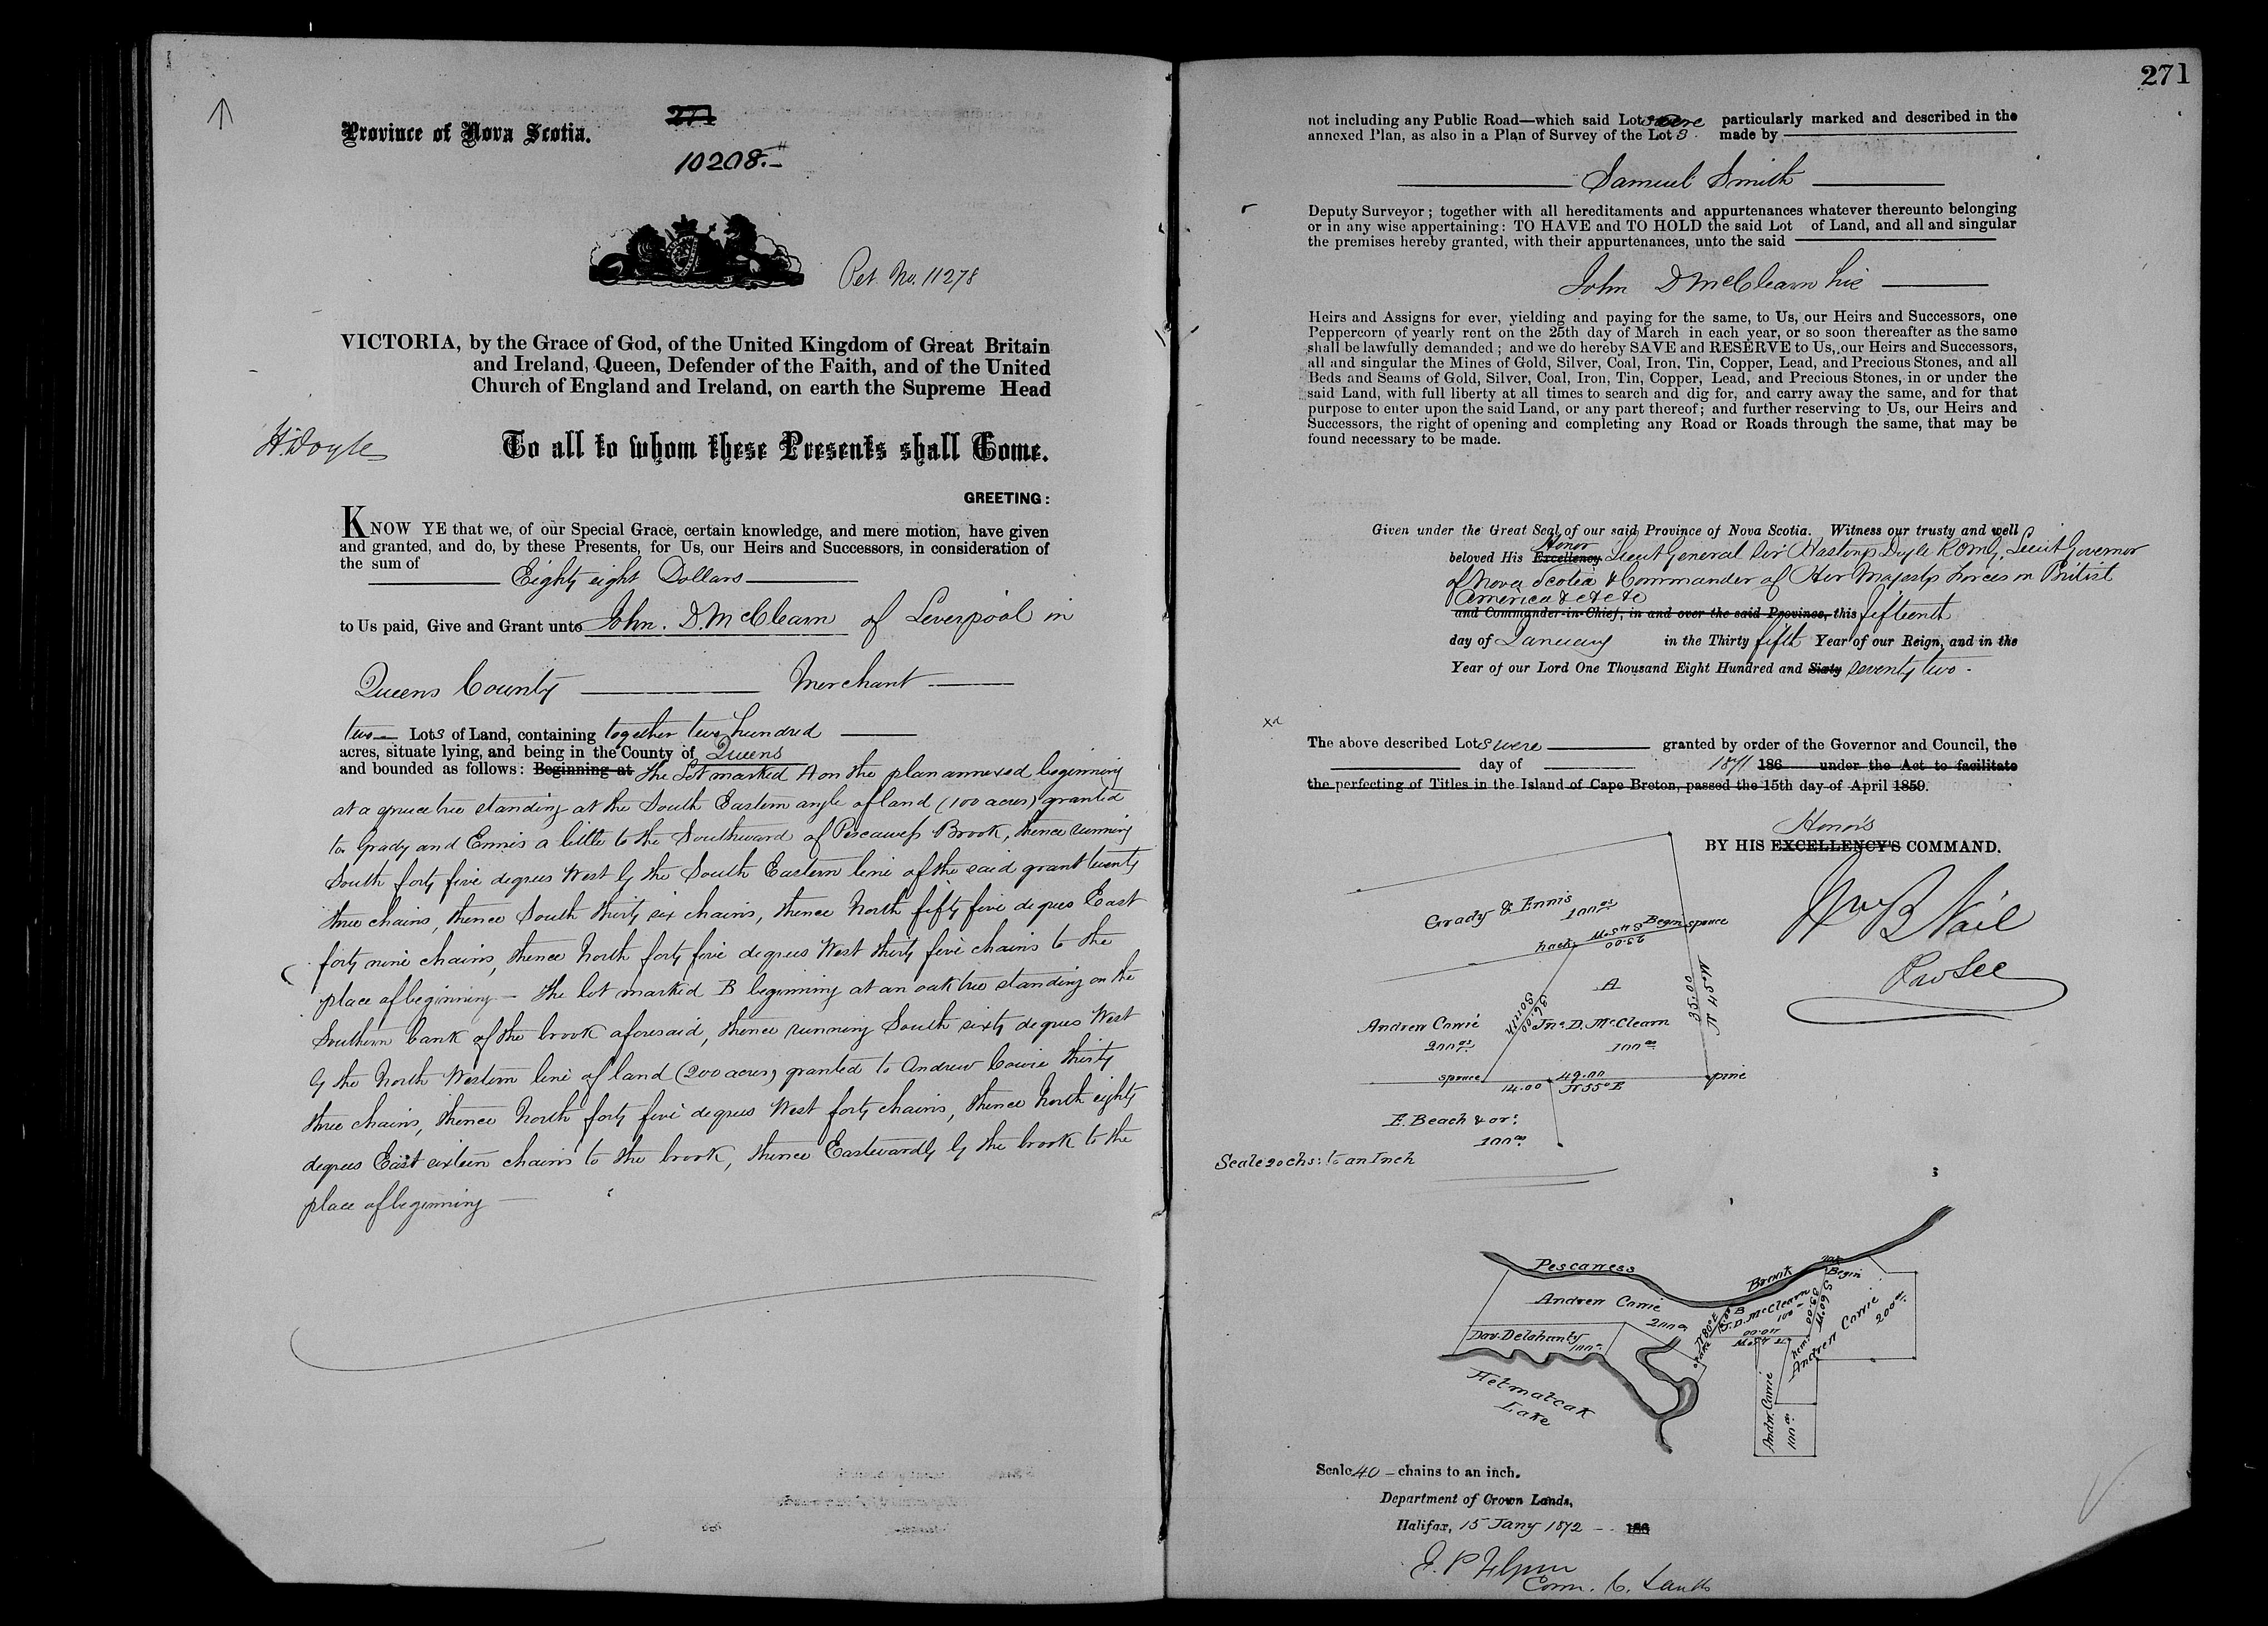 271
Province of Nova Scotia.
10208.
Pet. No. 11278
VICTORIA, by the Grace of God, of the United Kingdom of Great Britain
and Ireland, Queen, Defender of the Faith, and of the United
Church of England and Ireland, on earth the Supreme Head
H. Doyle
To all to whom these Presents shall Come.
GREETING:
KNOW YE that we, of our Special Grace, certain knowledge, and mere motion, have given
and granted, and do, by these Presents, for Us, our Heirs and Successors, in consideration of
the sum of
Eighty eight Dollars
to Us paid, Give and Grant unto John. D. McClearn of Liverpool in
Queens County Merchant
two Lots of Land, containing together two hundred
acres, situate lying, and being in the County of Queens
and bounded as follows: Beginning at the Lot marked A on the plan annexed beginning
at a spruce tree standing at the South Eastern angle of land (100 acres) granted
to Grady and Ennis a little to the Southward of Pescawess Brook, thence running
South forty five degrees West by the South Eastern line of the said grant twenty
three chains, thence South thirty six chains, thence North fifty five degrees East
forty nine chains, thence North forty five degrees West thirty five chains to the
place of beginning – the lot marked B beginning at an oak tree standing on the
Southern bank of the brook aforesaid, thence running South sixty degrees West
by the North Western line of land (200 acres) granted to Andrew Cowie thirty
three chains, thence North forty five degrees West forty chains, thence North eighty
degrees East sixteen chains to the brook, thence Eastwardly by the brook to the
place of beginning –
271
not including any Public Road—which said Lots were particularly marked and described in the
annexed Plan, as also in a Plan of Survey of the Lots made by
Samuel Smith
Deputy Surveyor; together with all hereditaments and appurtenances whatever thereunto belonging
or in any wise appertaining: TO HAVE and TO HOLD the said Lot of Land, and all and singular
the premises hereby granted, with their appurtenances, unto the said
John D McClearn his
Heirs and Assigns for ever, yielding and paying for the same, to Us, our Heirs and Successors, one
Peppercorn of yearly rent on the 25th day of March in each year, or so soon thereafter as the same
shall be lawfully demanded; and we do hereby SAVE and RESERVE to Us, our Heirs and Successors,
all and singular the Mines of Gold, Silver, Coal, Iron, Tin, Copper, Lead, and Precious Stones, and all
Beds and Seams of Gold, Silver, Coal, Iron, Tin, Copper, Lead, and Precious Stones, in or under the
said Land, with full liberty at all times to search and dig for, and carry away the same, and for that
purpose to enter upon the said Land, or any part thereof; and further reserving to Us, our Heirs and
Successors, the right of opening and completing any Road or Roads through the same, that may be
found necessary to be made.
Given under the Great Seal of our said Province of Nova Scotia. Witness our trusty and well
Honor
beloved His Excellency Lieut General Sir Hastings Doyle KCMG, Lieut Governor
of Nova Scotia & Commander of Her Majestys Forces in British
America &c &c &c
and Commander-in-Chief, in and over the said Province, this fifteenth
day of January in the Thirty fifth Year of our Reign, and in the
Year of our Lord One Thousand Eight Hundred and Sixty seventy two.
The above described Lots were granted by order of the Governor and Council, the
day of 1871 186 under the Act to facilitate
the perfecting of Titles in the Island of Cape Breton, passed the 15th day of April 1859.
Honor's
BY HIS EXCELLENCY'S COMMAND.
Wm B Vail
Pro Sec
Grady & Ennis
100 as
hack S 45° W Begin spruce
23.00
A
N 45° W
35.00
South
36.00
Andrew Cowie
200 as
Jno. D. McClearn
100 as
spruce 14.00 49.00 pine
N 55° E
E. Beach & ors
100 as
Scale 20 chs: to an Inch
Pescawess Brook
oak
Begin
Andrew Cowie
200 a
B
J. D. McClearn
100
S 60 W
33.00
N 80 E
16.00
40.00
N 45 W
hem.
Andrew Cowie
200 as
Dav. Delahanty
100 as
Andw. Cowie
100 as
Lake
Scale 40 – chains to an inch.
Department of Crown Lands,
Halifax, 15 Jany 1872 186
Com. C. Lands